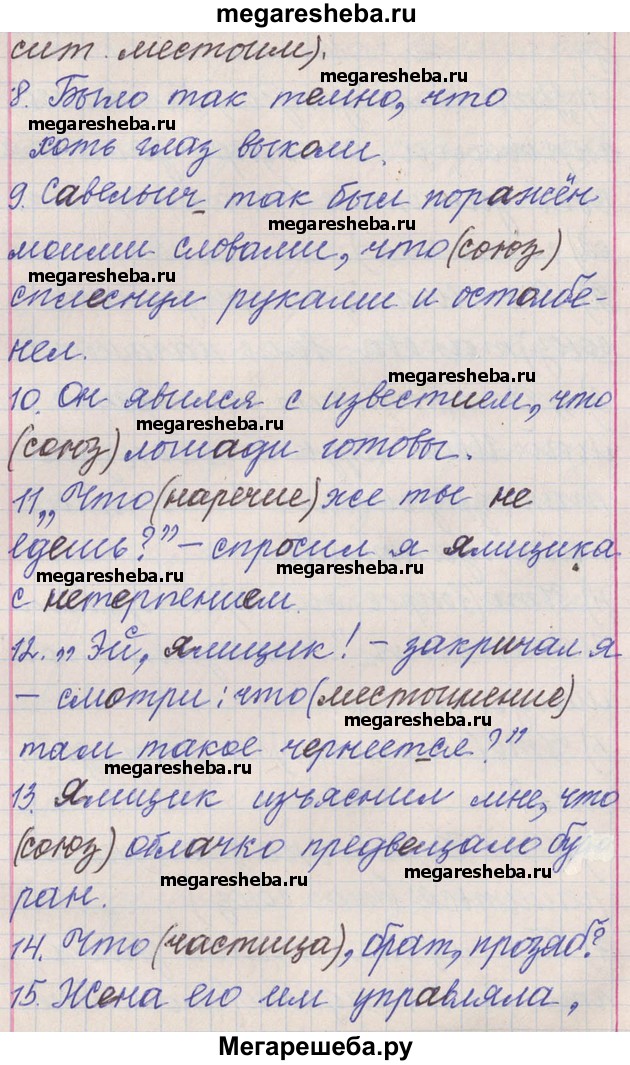 megaresheba.ru
сит. местоим).
megaresheba.ru
8. Было так темно, что
megaresheba.ru
хоть глаз выколи.
9. Савельич так был поражён
megaresheba.ru
моими словами, что (союз)
megaresheba.ru
сплеснул руками и остолбе-
нел.
megaresheba.ru
10. Он явился с известием, что
(союз) лошади готовы.
megaresheba.ru
11. „Что (наречие) же ты не
едешь?” – спросил я ямщика
megaresheba.ru
с нетерпением.
12. „Эй, ямщик! – закричал я
– смотри: что (местоимение)
megaresheba.ru
там такое чернеется?”
megaresheba.ru
13. Ямщик изъяснил мне, что
(союз) облачко предвещало бу
megaresheba.ru
ран.
14. Что (частица), брат, прозяб?
megaresheba.ru
15. Жена его им управляла,
Мегарешеба.ру